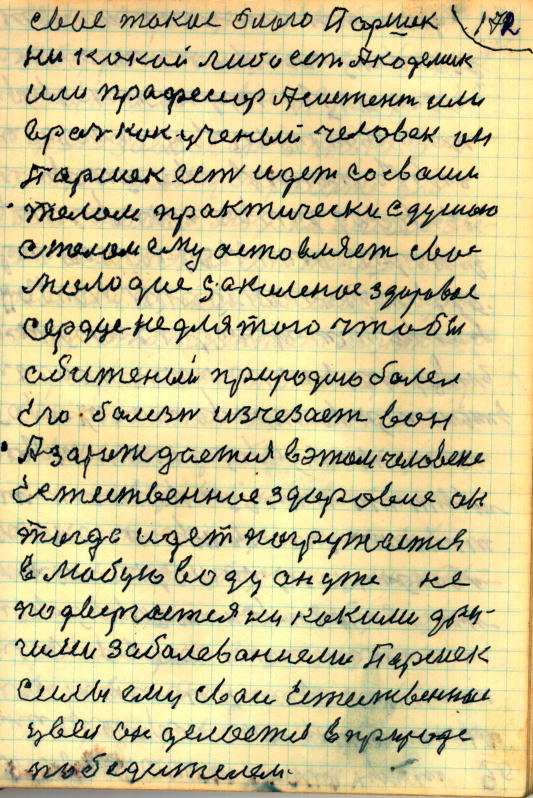 свое такое благо Паршек 172
ни кокой либо ест Акодемик
или прафесир Асистент или
врач как ученый человек он
Паршек ест идет со сваим
телом практически с душою
с телом ему астовляет свое
молодие закаленое здоровое
сердце не для того что бы
абиженый природаю балел
Его балезн изчезает вон
А зараждается в этом человеке
Естественное здоровие он
тогда идет погружается
в любую воду он уже не
подвергается ни какими дру-
гими забалеваниеми Паршек
силы ему сваи Естественные
ввел он делается в природе
победителем.